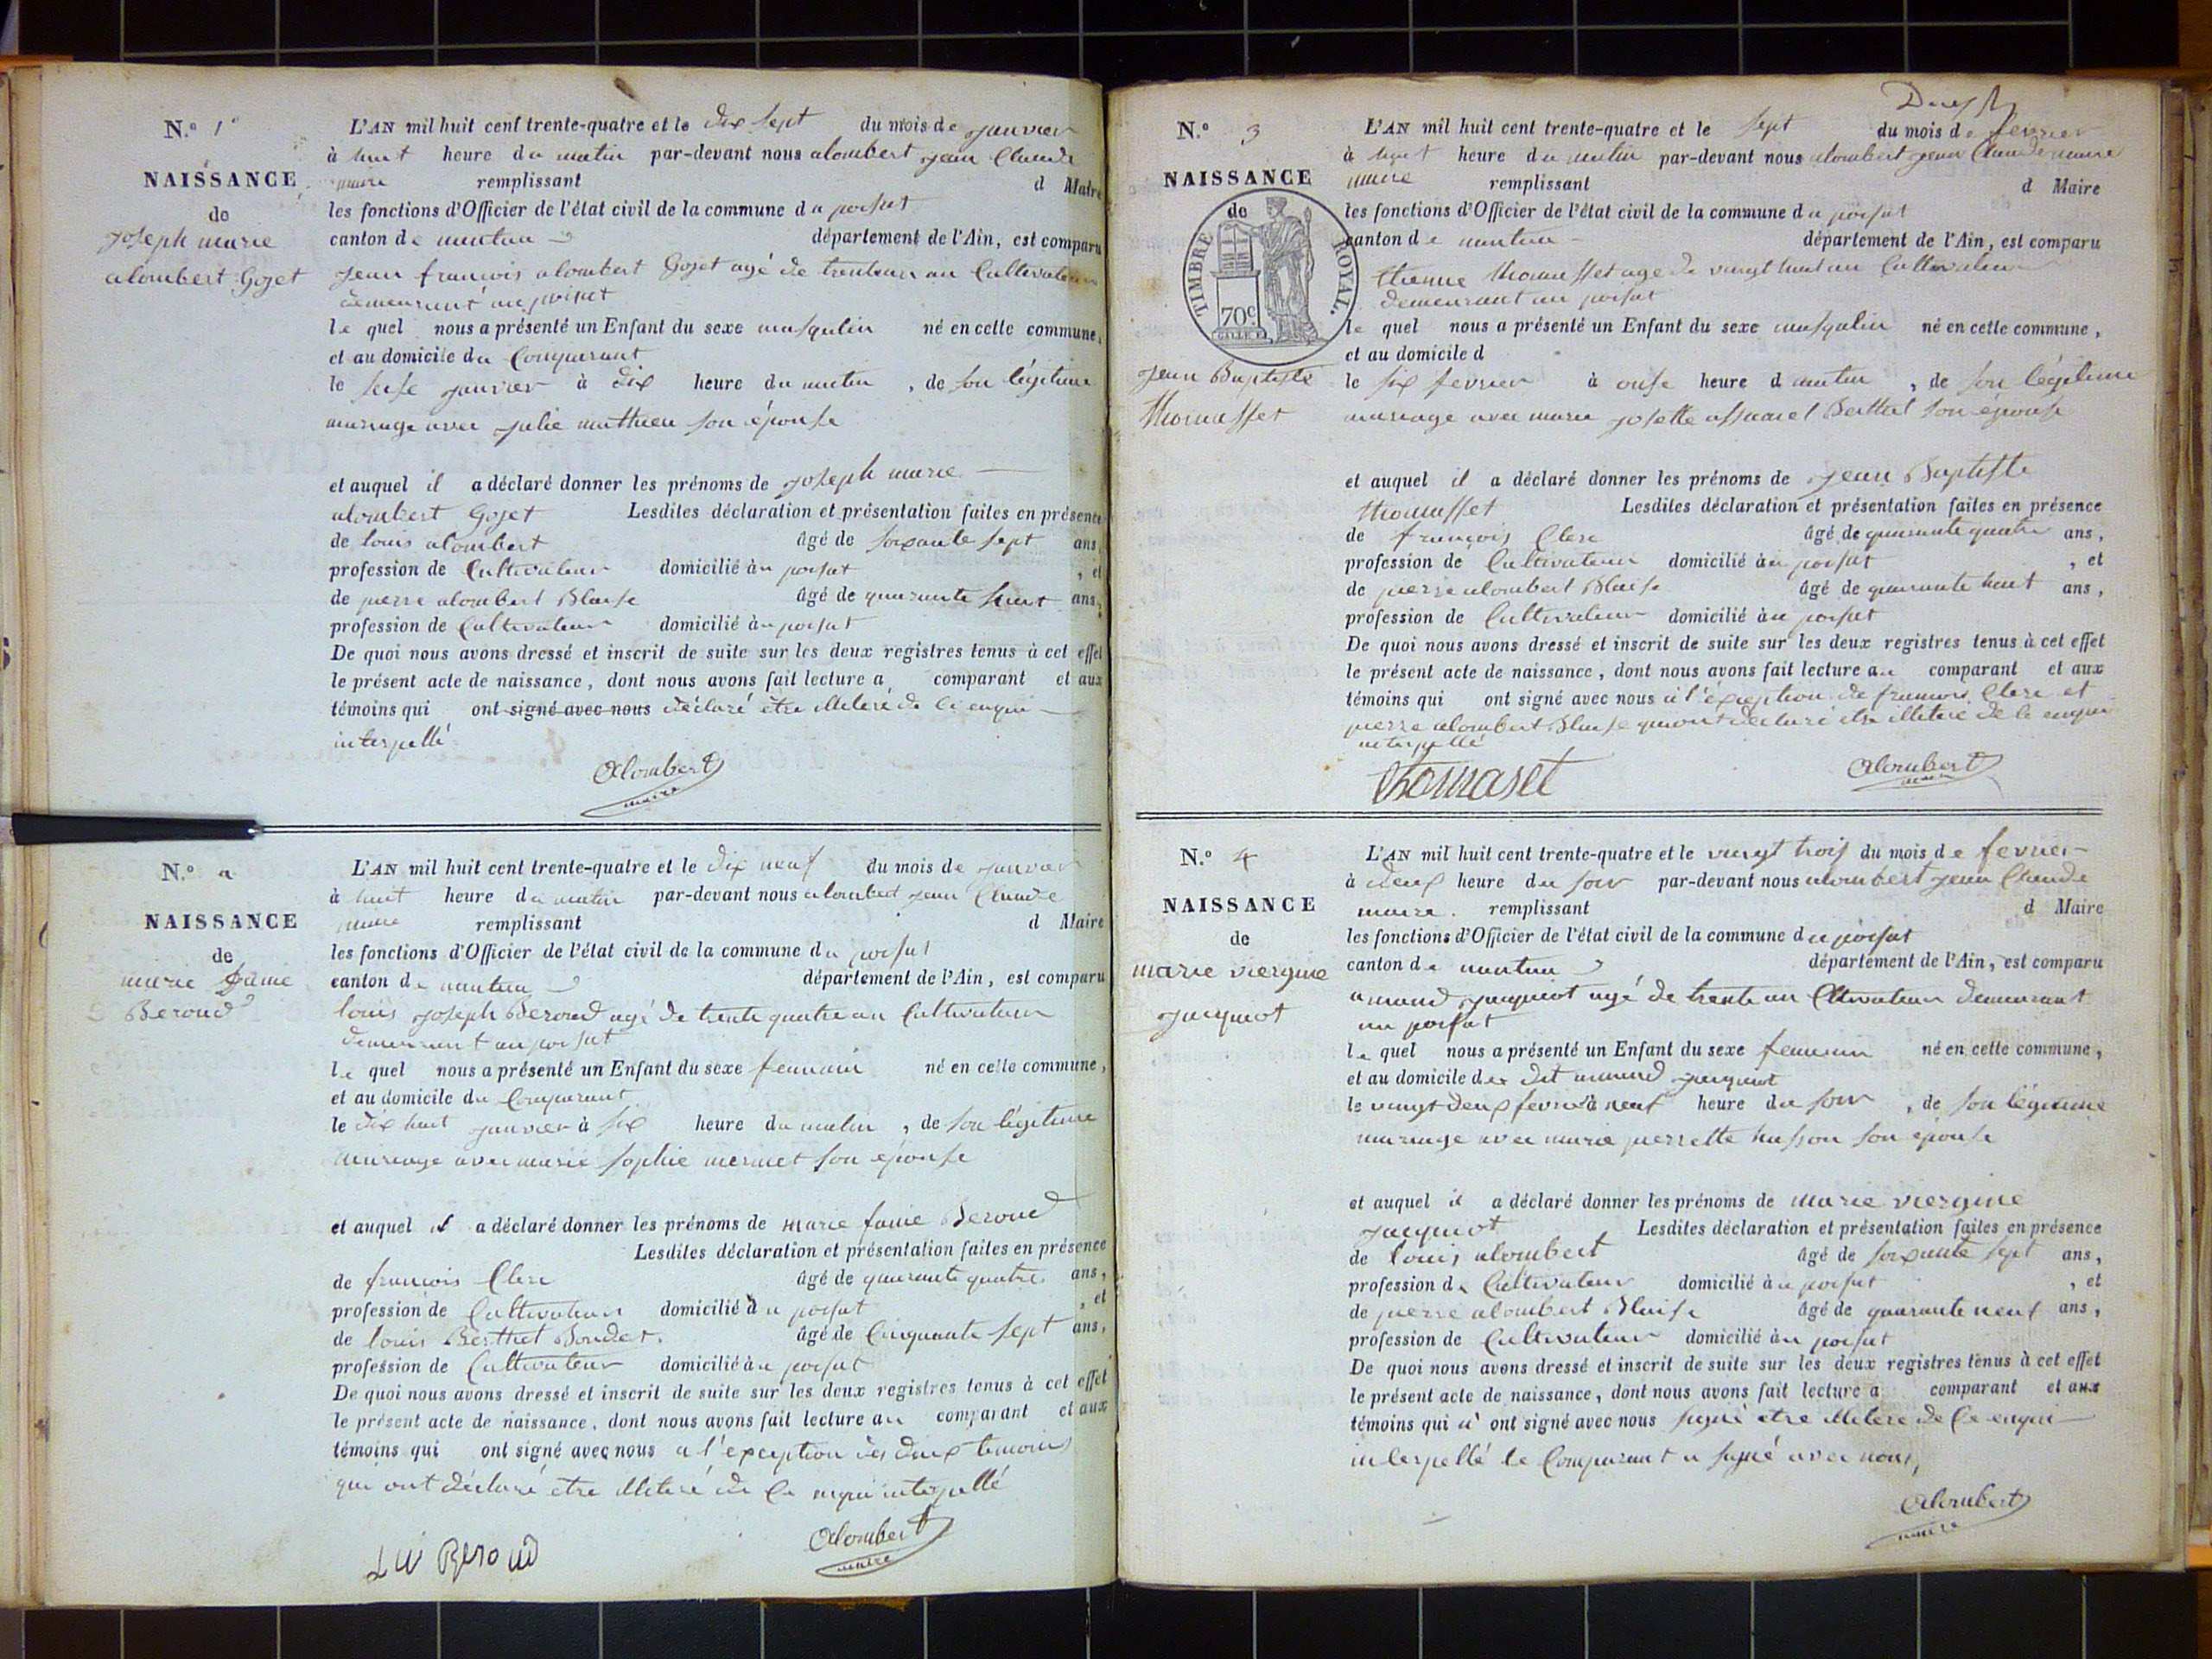 N.o 1
NAISSANCE
de
joseph marie
alombert Gojet
L'AN mil huit cent trente-quatre et le dix sept du mois de janvier
à huit heure du matin par-devant nous alombert jean Claude
maire remplissant d Maire
les fonctions d'Officier de l'état civil de la commune du poisat
canton de nantua département de l'Ain, est comparu
jean francois alombert Gojet agé de trente un an Cultivateur
demeurant au poisat
le quel nous a présenté un Enfant du sexe masqulin né en cette commune,
et au domicile du Comparant
le seise janvier à dix heure du matin, de son légitime
mariage avec julie mathieu son épouse
et auquel il a déclaré donner les prénoms de joseph marie
alombert Gojet Lesdites déclaration et présentation faites en présence
de louis alombert âgé de soixante sept ans,
profession de Cultivateur domicilié au poisat, et
de pierre alombert Blaise âgé de quarante huit ans,
profession de Cultivateur domicilié au poisat
De quoi nous avons dressé et inscrit de suite sur les deux registres tenus à cet effet
le présent acte de naissance, dont nous avons fait lecture a comparant et aux
témoins qui ont signé avec nous déclaré etre illiteré de ce enqui
interpellé
Alombert
maire
N.o 2
NAISSANCE
de
marie fanie
Beroud
L'AN mil huit cent trente-quatre et le dix neuf du mois de janvier
à huit heure du matin par-devant nous alombert jean Claude
maire remplissant d Maire
les fonctions d'Officier de l'état civil de la commune du poisat
canton de nantua département de l'Ain, est comparu
louis joseph Beroud agé de trente quatre an Cultivateur
demeurant au poisat
le quel nous a présenté un Enfant du sexe feminin né en cette commune,
et au domicile du Comparant
le dix huit janvier à six heure du matin, de son légitime
mariage avec marie sophie mermet son épouse
et auquel il a déclaré donner les prénoms de marie fanie Beroud
Lesdites déclaration et présentation faites en présence
de francois Clerc âgé de quarante quatre ans,
profession de Cultivateur domicilié au poisat, et
de louis Berthet Bondet âgé de Cinquante sept ans,
profession de Cultivateur domicilié au poisat
De quoi nous avons dressé et inscrit de suite sur les deux registres tenus à cet effet
le présent acte de naissance, dont nous avons fait lecture au comparant et aux
témoins qui ont signé avec nous a l'exception des deux temoins
qui ont déclaré etre illiteré de ce enqui interpellé
Alombert
maire
Lui Beroud
N.o 3
NAISSANCE
de
TIMBRE ROYAL.
70c
jean Baptiste
thomasset
L'AN mil huit cent trente-quatre et le sept du mois de fevrier
à huit heure du matin par-devant nous alombert jean Claude maire
maire remplissant d Maire
les fonctions d'Officier de l'état civil de la commune du poisat
canton de nantua département de l'Ain, est comparu
Etienne thomasset age de vingt huit an Cultivateur
demeurant au poisat
le quel nous a présenté un Enfant du sexe masqulin né en cette commune,
et au domicile d
le six fevrier à onse heure d matin, de son légitime
mariage avec marie josette Berthet son épouse
et auquel il a déclaré donner les prénoms de jean Baptiste
thomasset Lesdites déclaration et présentation faites en présence
de françois Clerc âgé de quarante quatre ans,
profession de Cultivateur domicilié au poisat, et
de pierre alombert Blaise âgé de quarante huit ans,
profession de Cultivateur domicilié au poisat
De quoi nous avons dressé et inscrit de suite sur les deux registres tenus à cet effet
le présent acte de naissance, dont nous avons fait lecture au comparant et aux
témoins qui ont signé avec nous à l'éxception de francois Clerc et
pierre alombert Blaise qui ont declaré etre illiteré de ce enqui
interpellé
thomaset
Alombert
maire
N.o 4
NAISSANCE
de
marie viergine
jacquiot
L'AN mil huit cent trente-quatre et le vingt trois du mois de fevrier
à deux heure du soir par-devant nous alombert jean Claude
maire. remplissant d Maire
les fonctions d'Officier de l'état civil de la commune du poisat
canton de nantua département de l'Ain, est comparu
amand jacquiot agé de trente an Cltivateur demeurant
au poisat
le quel nous a présenté un Enfant du sexe feminin né en cette commune,
et au domicile du dit amand jacquiot
le vingt deux fevrier à neuf heure du soir, de son légitime
mariage avec marie pierrette husson son épouse
et auquel il a déclaré donner les prénoms de marie viergine
jacquiot Lesdites déclaration et présentation faites en présence
de louis alombert âgé de soixante sept ans,
profession de Cultivateur domicilié au poisat, et
de pierre alombert Blaise âgé de quarante neuf ans,
profession de Cultivateur domicilié au poisat
De quoi nous avons dressé et inscrit de suite sur les deux registres tenus à cet effet
le présent acte de naissance, dont nous avons fait lecture a comparant et aux
témoins qui n' ont signé avec nous etre illiteré de ce enqui
interpellé le Comparant a signé avec nous,
Alombert
maire